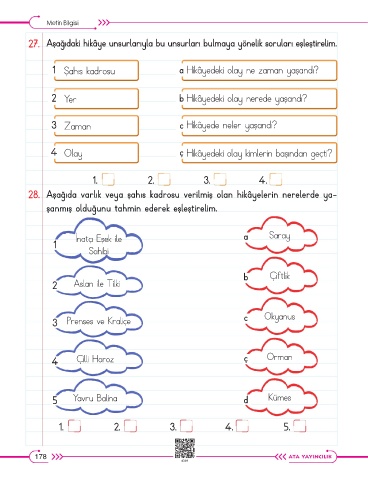 Metin Bilgisi
27. Aşağıdaki hikâye unsurlarıyla bu unsurları bulmaya yönelik soruları eşleştirelim.
1 Şahıs kadrosu
a Hikâyedeki olay ne zaman yaşandı?
2 Yer
b Hikâyedeki olay nerede yaşandı?
3 Zaman
c Hikâyede neler yaşandı?
4 Olay
ç Hikâyedeki olay kimlerin başından geçti?
1. 2. 3. 4.
28. Aşağıda varlık veya şahıs kadrosu verilmiş olan hikâyelerin nerelerde ya-
şanmış olduğunu tahmin ederek eşleştirelim.
1 İnatçı Eşek ile
Sahibi
a Saray
2 Aslan ile Tilki
b Çiftlik
3 Prenses ve Kraliçe
c Okyanus
4 Çilli Horoz
ç Orman
5 Yavru Balina
d Kümes
1. 2. 3. 4. 5.
178
ATA YAYINCILIK